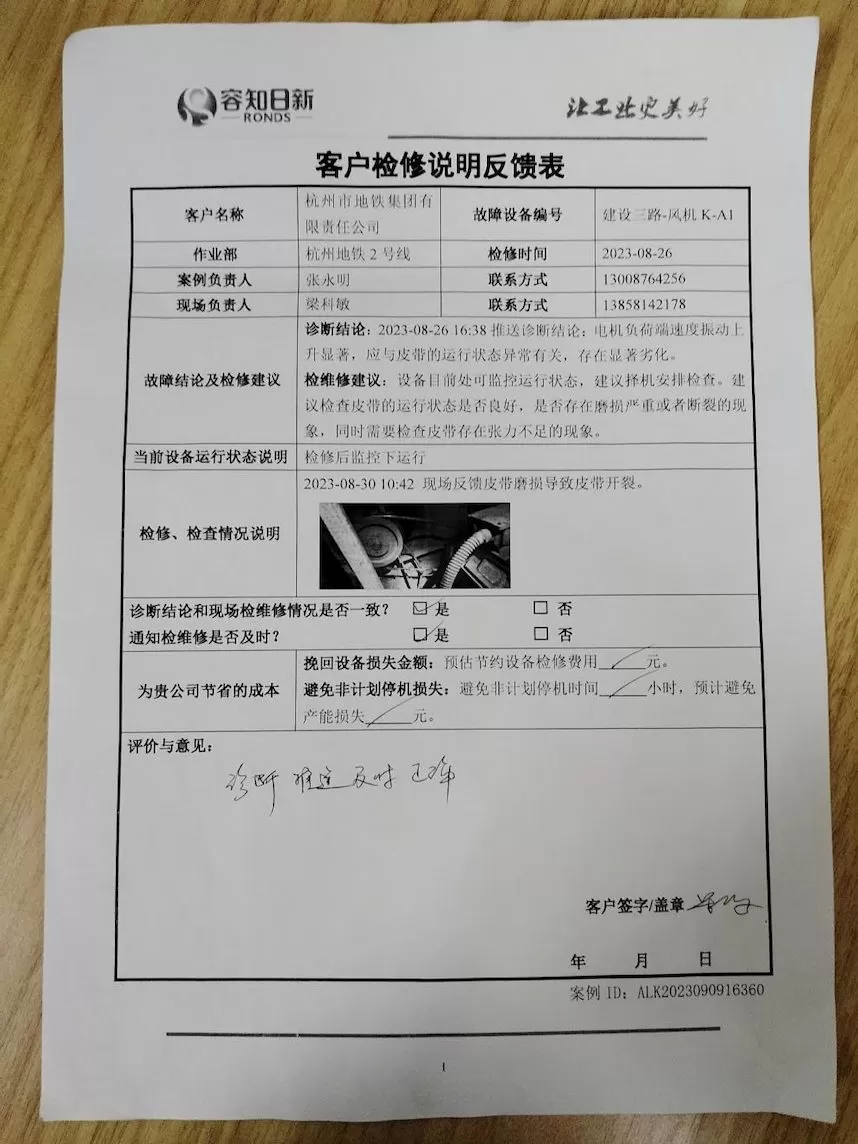 容知日新
RONDS
让工业更美好
客户检修说明反馈表
客户名称
杭州市地铁集团有
限责任公司
故障设备编号
建设三路-风机 K-A1
作业部
杭州地铁 2 号线
检修时间
2023-08-26
案例负责人
张永明
联系方式
13008764256
现场负责人
梁科敏
联系方式
13858142178
故障结论及检修建议
诊断结论：2023-08-26 16:38 推送诊断结论：电机负荷端速度振动上
升显著，应与皮带的运行状态异常有关，存在显著劣化。
检维修建议：设备目前处可监控运行状态，建议择机安排检查。建
议检查皮带的运行状态是否良好，是否存在磨损严重或者断裂的现
象，同时需要检查皮带存在张力不足的现象。
当前设备运行状态说明
检修后监控下运行
检修、检查情况说明
2023-08-30 10:42 现场反馈皮带磨损导致皮带开裂。
诊断结论和现场检维修情况是否一致？ ☑是 □ 否
通知检维修是否及时？ ☑是 □ 否
为贵公司节省的成本
挽回设备损失金额：预估节约设备检修费用____元。
避免非计划停机损失：避免非计划停机时间____小时，预计避免
产能损失____元。
评价与意见：
诊断推送及时正确
客户签字/盖章
年 月 日
案例 ID：ALK2023090916360
1